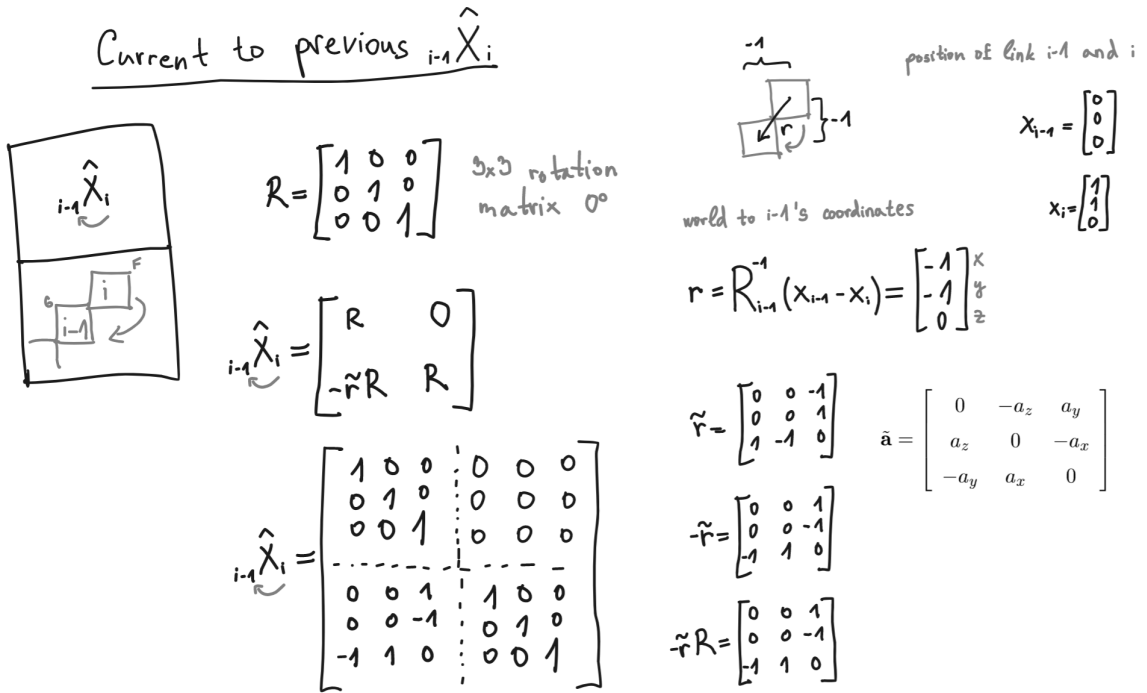 Current to previous i-1X̂i
i-1X̂i
F
G
i
i-1
R = [1 0 0
0 1 0
0 0 1]
3x3 rotation
matrix 0°
i-1X̂i = [R 0
-r̃R R]
i-1X̂i = [1 0 0 0 0 0
0 1 0 0 0 0
0 0 1 0 0 0
0 0 1 1 0 0
0 0 -1 0 1 0
-1 1 0 0 0 1]
-1
r
-1
position of link i-1 and i
Xi-1 = [0
0
0]
Xi = [1
1
0]
world to i-1's coordinates
r = R⁻¹i-1 (Xi-1 - Xi) = [-1 x
-1 y
0] z
r̃ = [0 0 -1
0 0 1
1 -1 0]
ã = [0 -az ay
az 0 -ax
-ay ax 0]
-r̃ = [0 0 1
0 0 -1
-1 1 0]
-r̃R = [0 0 1
0 0 -1
-1 1 0]